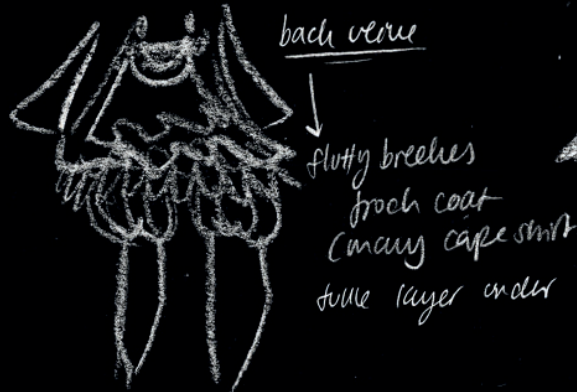 back veiw
fluffy breeches
frock coat
(many cape shirt
tulle layer under